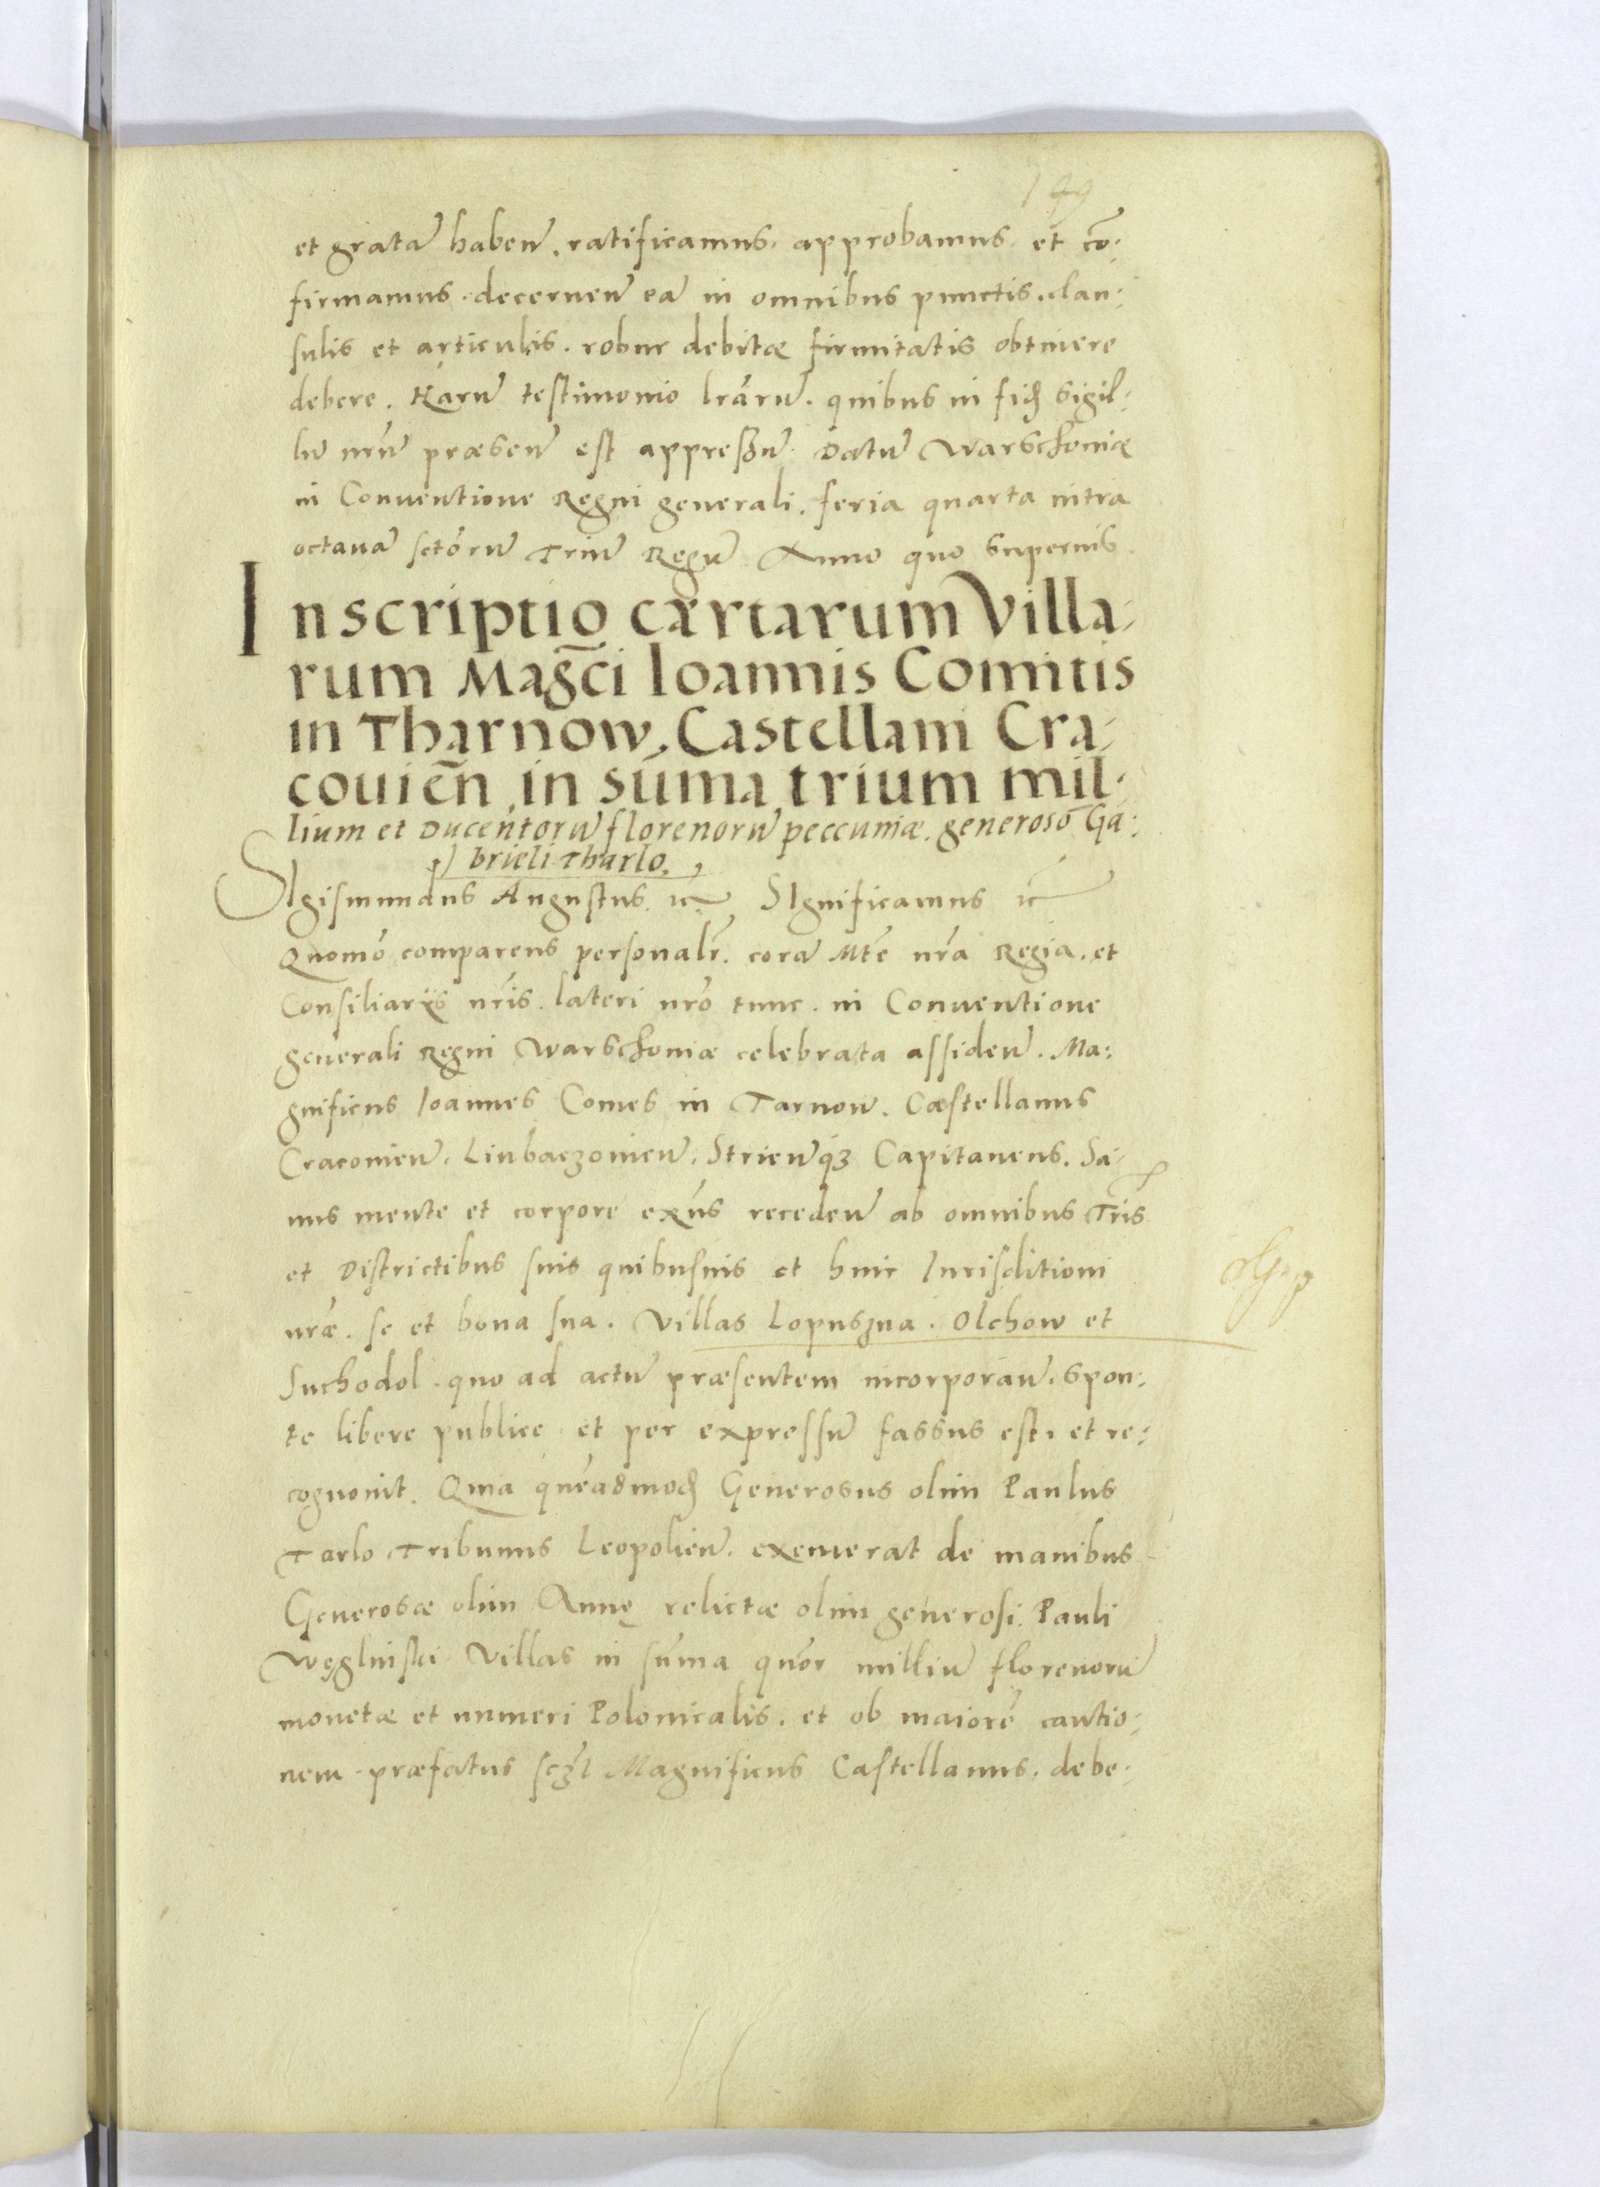 149
et gratã habeñ. ratificamus. approbamus. et cõ:
firmamus. decerneñ eã in omnibus punctis. clau:
sulis et articulis. robur debitæ firmitatis obtinere
debere. Harũ testimonio lrãrũ. quibus in fidẽ Sigil:
lũ nrũ præsenˉ est appressũ. Datũ Warschoviæ
in Conventione Regni generali. feria quarta intra
octavã sctõrũ Triũ Regũ Anno quo Supernis.
Inscriptio cærtarum Villa:
rum Magci Ioannis Comitis
in Tharnow, Castellani Cra:
covieñ, in sũma trium mil:
lium et Ducentorũ florenorũ peccuniæ. generoso Ga:
brieli Tharlo.
SIgismundus Augustus. ꝛc SIgnificamus ꝛc
Quomõ comparens personalr̃. corã Mte nrã Regia. et
Consiliarijs nrĩs. lateri nrõ tunc. in Conventione
generali Regni Warschoviæ celebrata assideñ. Ma:
gnificus Ioannes Comes in Tarnow. Castellanus
Cracovieñ. Liubaczovieñ. Strieñqꝫ Capitaneus. Sa:
nus mente et corpore exñs recedeñ ab omnibus Trĩs
et Districtibus suis quibusuis et huic Iurisditioni
nræ. se et bona sua. Villas Lopuszna. Olchow et
Suchodol. quo ad actũ præsentem incorporañ. Spon:
te libere publice et per expressũ fassus est. et re:
cognovit. Quia quẽadmodũ Generosus olim Paulus
Tarlo Tribunus Leopolieñ. exemerat de manibus
Generosæ olim Annę relictæ olim generosi Pauli
Węglinski Villas in sũma quor̃ milliũ florenorũ
monetæ et numeri Polonicalis. et ob maiorẽ cautio:
nem. præfatus sczl Magnificus Castellanus. debe: